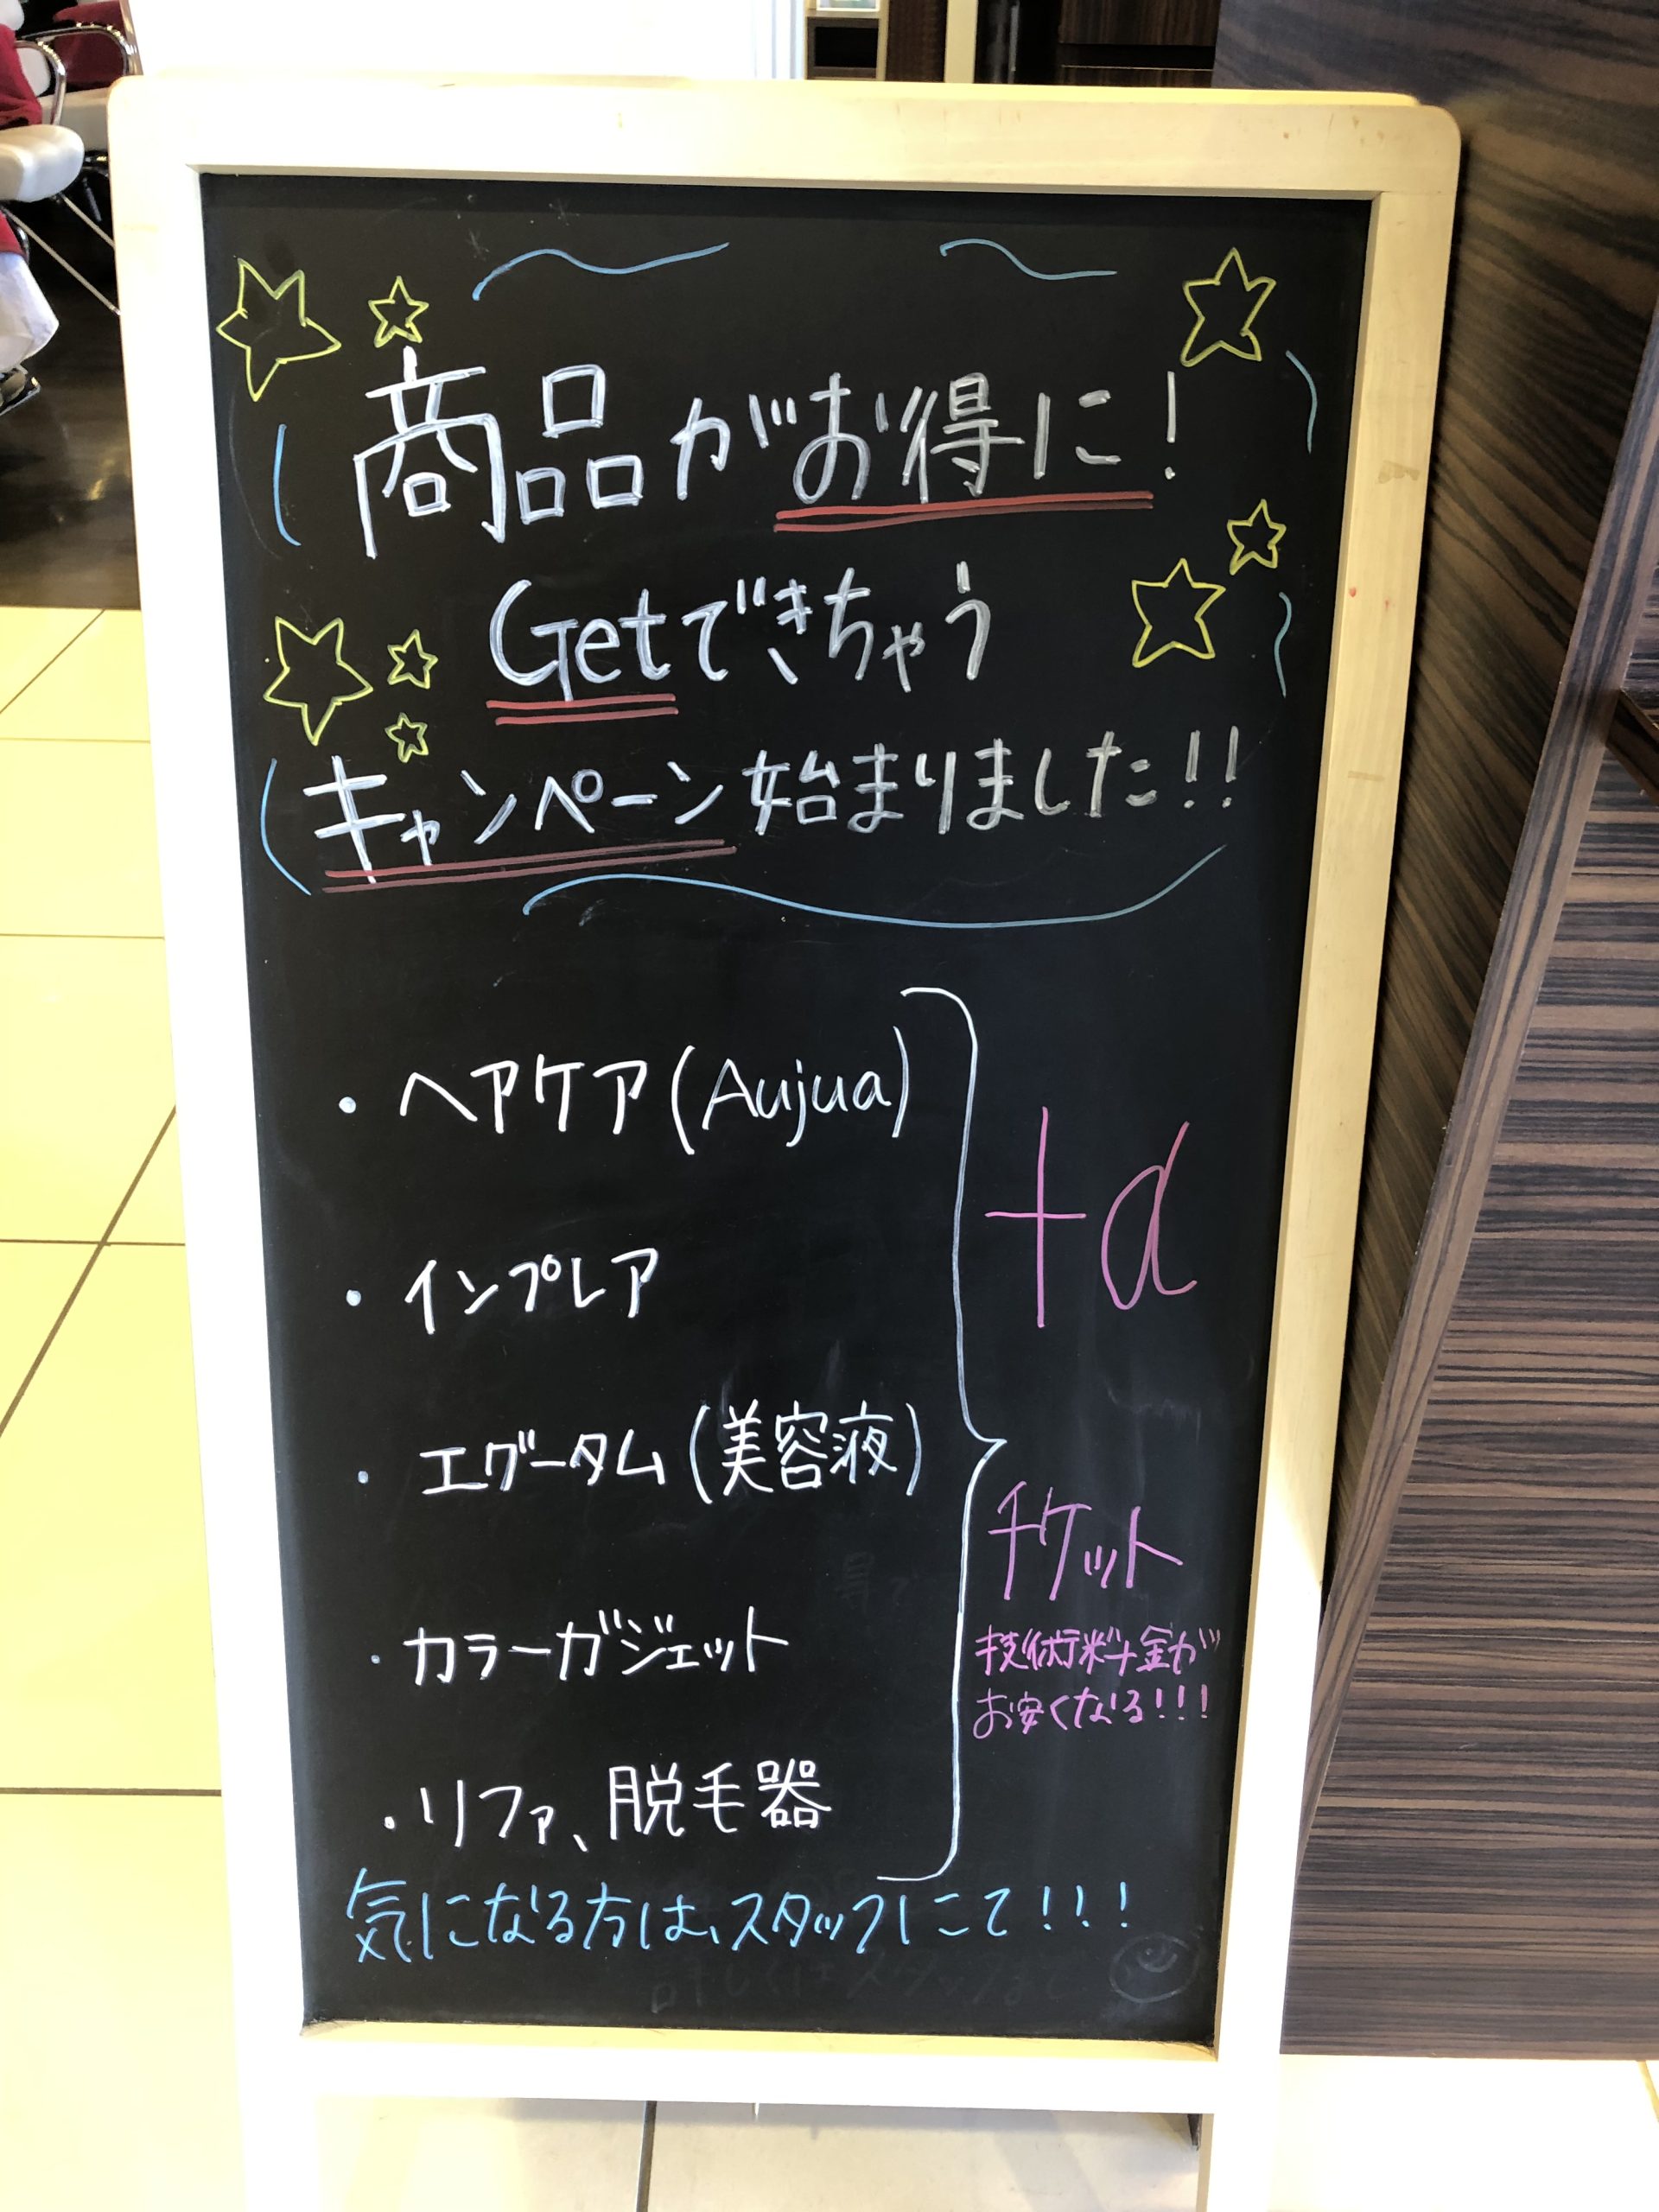 商品がお得に!
Getできちゃう
キャンペーン始まりました!!
・ヘアケア(Aujua)
・インプレア
・エグータム(美容液)
・カラーガジェット
・リファ、脱毛器
+α
チケット
技術料金が
お安くなる!!!
気になる方は、スタッフにて!!!